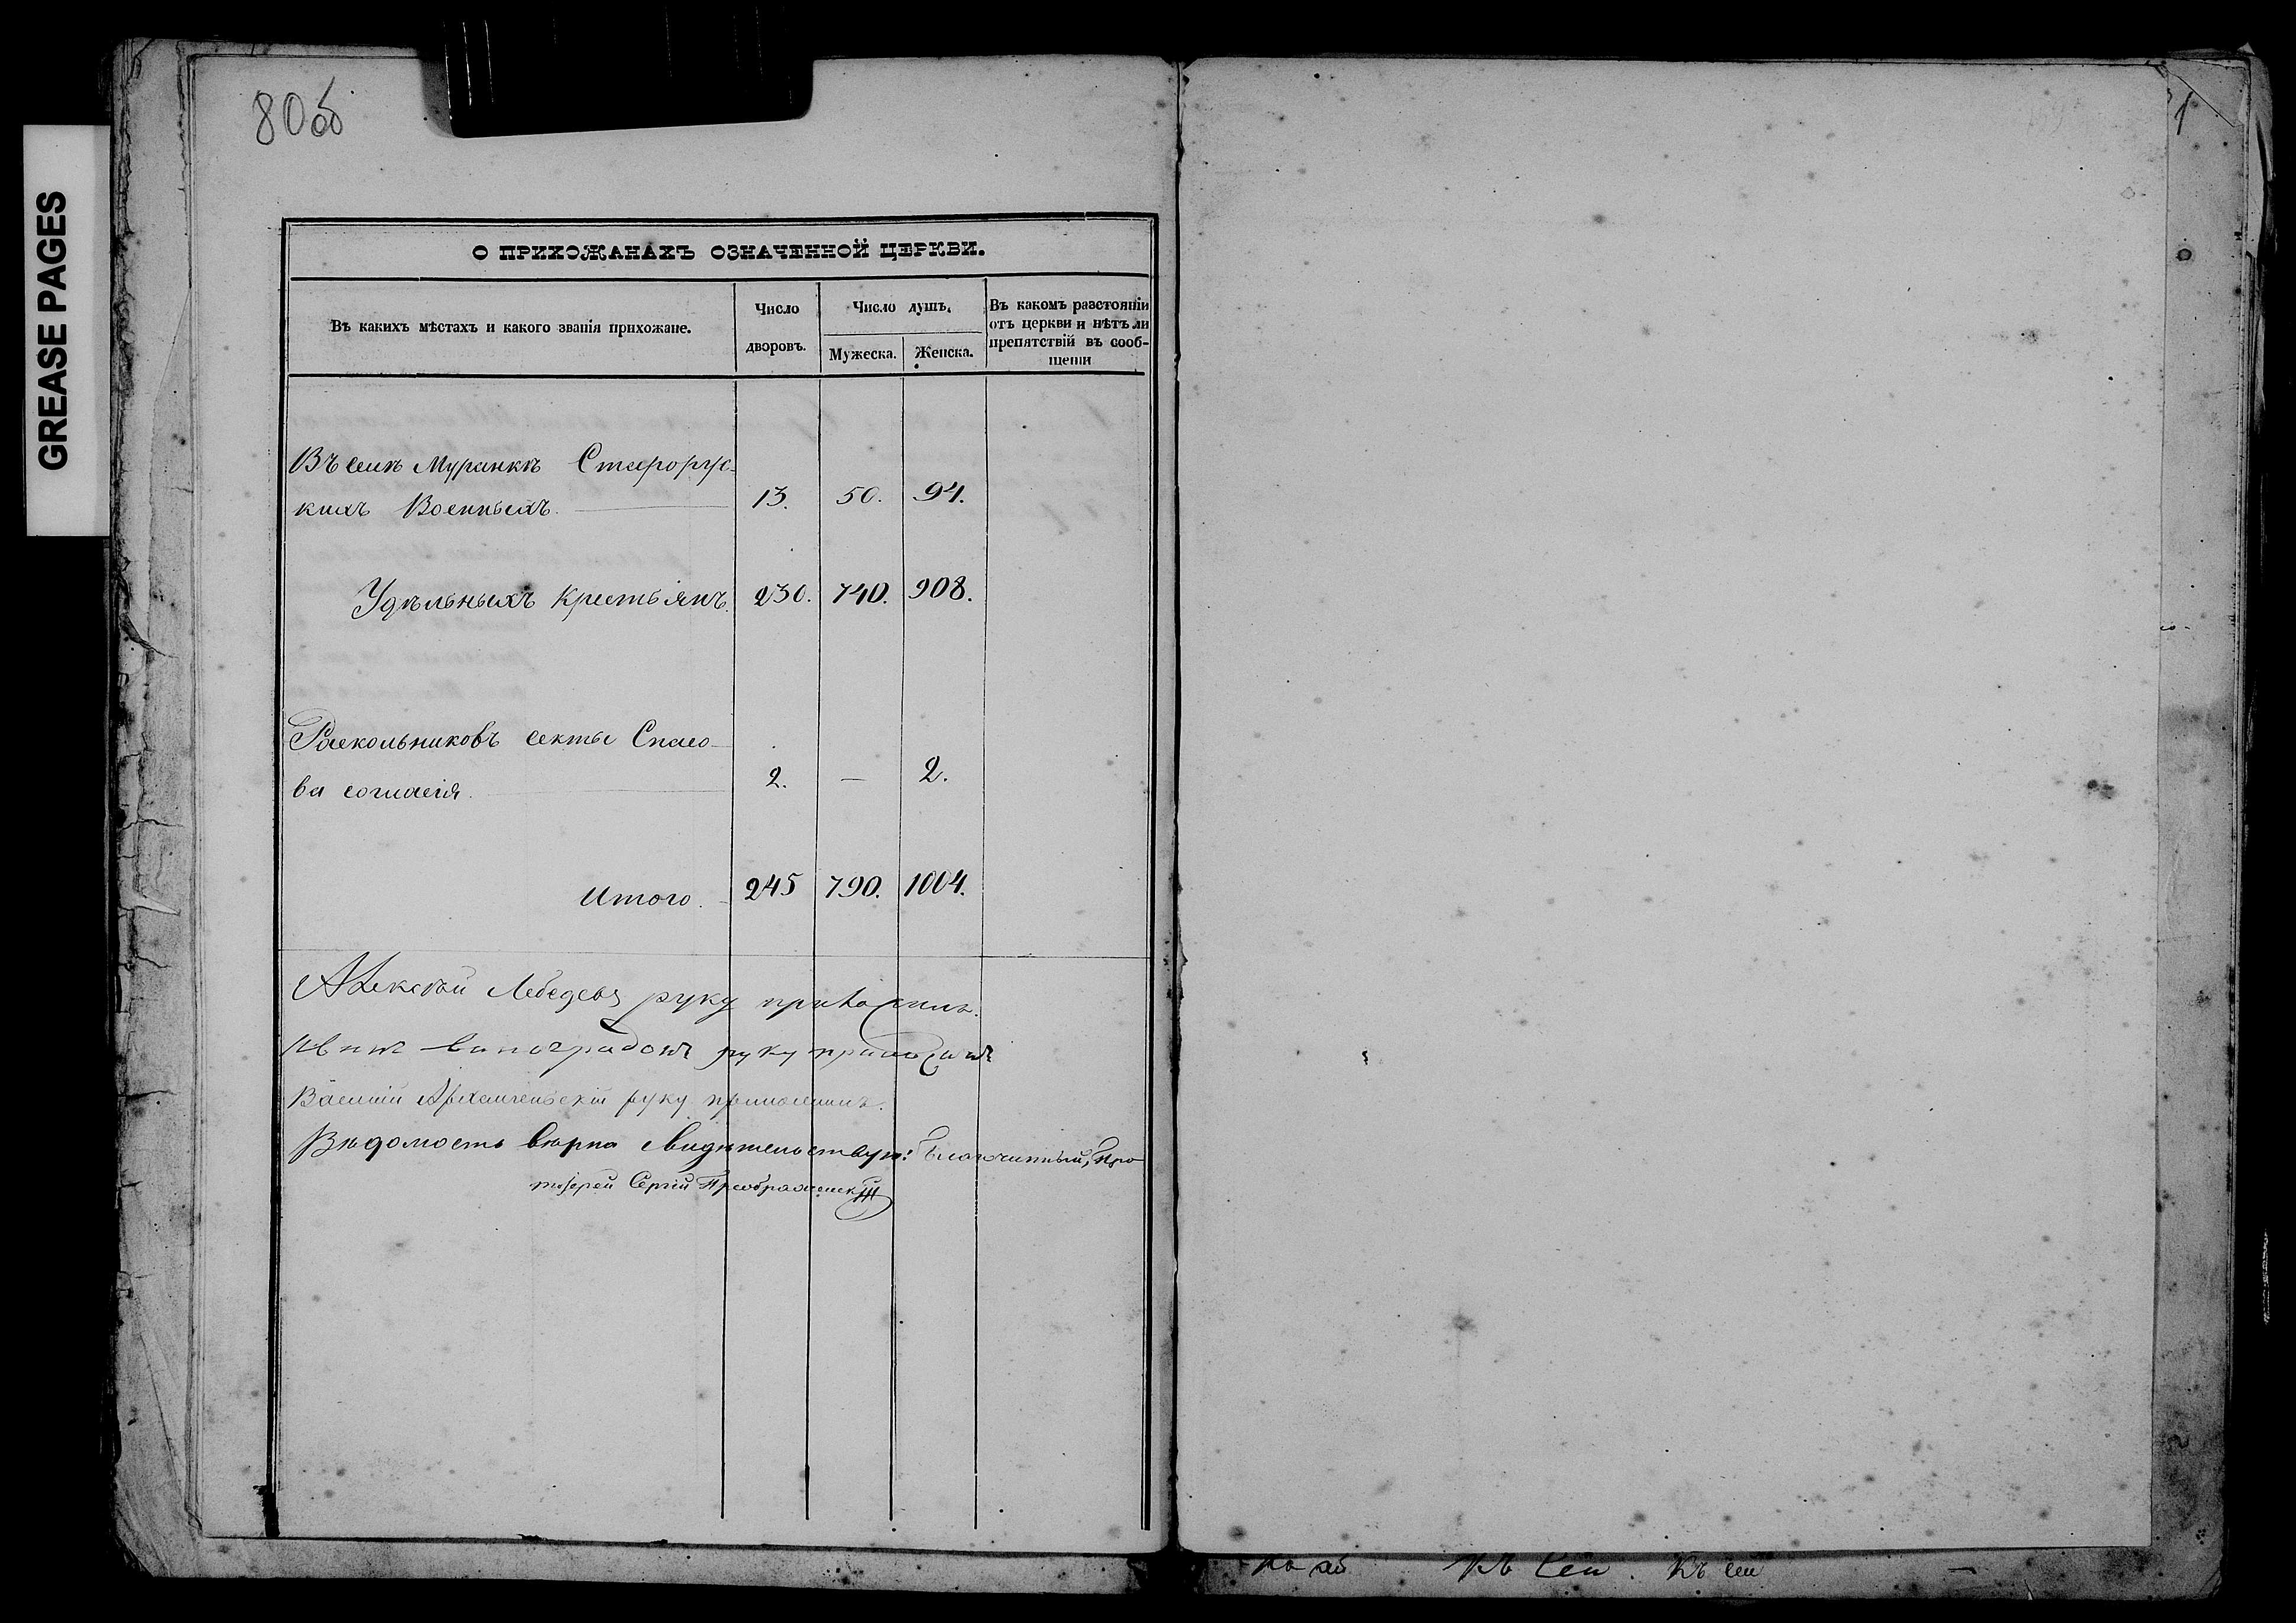 GREASE PAGES
80об
О ПРИХОЖАНАХЪ ОЗНАЧЕННОЙ ЦЕРКВИ.
Въ какихъ мѣстахъ и какого званія прихожане.
Число дворовъ.
Число душъ.
Мужеска. Женска.
Въ какомъ разстояніи
отъ церкви и нѣтъ ли
препятствій въ сооб-
щеніи
Въ селѣ Муранкѣ Старорус-
кихъ Военныхъ. 13. 50. 94.
Удѣльныхъ крестьянъ. 230. 740. 908.
Раскольниковъ секты Спасо-
ва согласія. 2. — 2.
Итого. 245 790. 1004.
Алексѣй Лебедевъ руку приложилъ.
Иванъ Виноградовъ руку приложилъ
Василій Архангельскій руку приложилъ.
Вѣдомость вѣрна свидѣтельствую: Благочинный, Про
тоіерей Сергій Преображенскій
1
Къ сей Къ сей